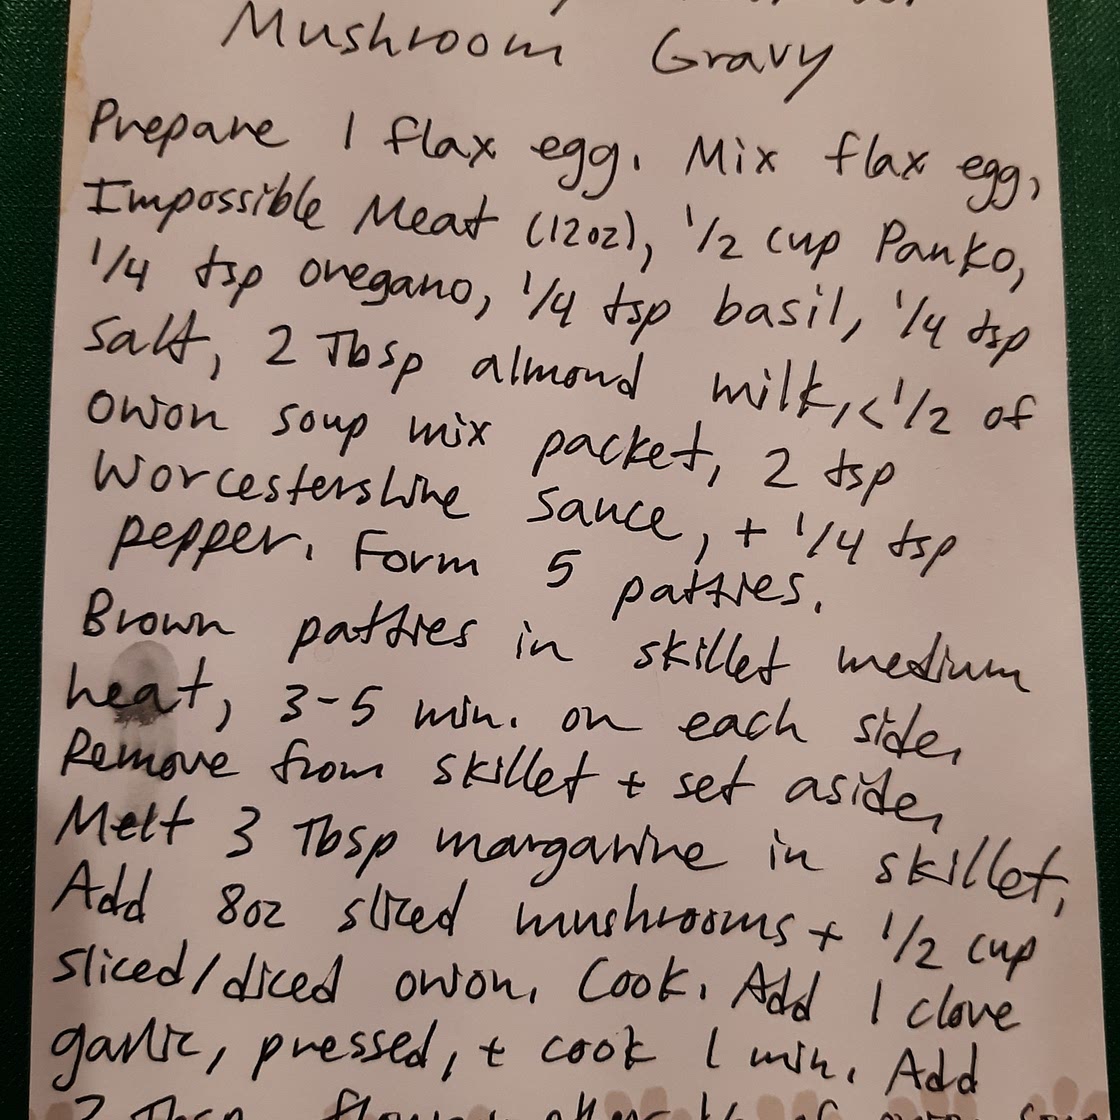 Mushroom Gravy
Prepare 1 flax egg. Mix flax egg,
Impossible Meat (12oz), 1/2 cup Panko,
1/4 tsp oregano, 1/4 tsp basil, 1/4 tsp
salt, 2 Tbsp almond milk, <1/2 of
onion soup mix packet, 2 tsp
Worcestershire sauce, + 1/4 tsp
pepper. Form 5 patties.
Brown patties in skillet medium
heat, 3-5 min. on each side.
Remove from skillet + set aside.
Melt 3 Tbsp margarine in skillet.
Add 8oz sliced mushrooms + 1/2 cup
sliced/diced onion. Cook. Add 1 clove
garlic, pressed, + cook 1 min. Add
Tbsp